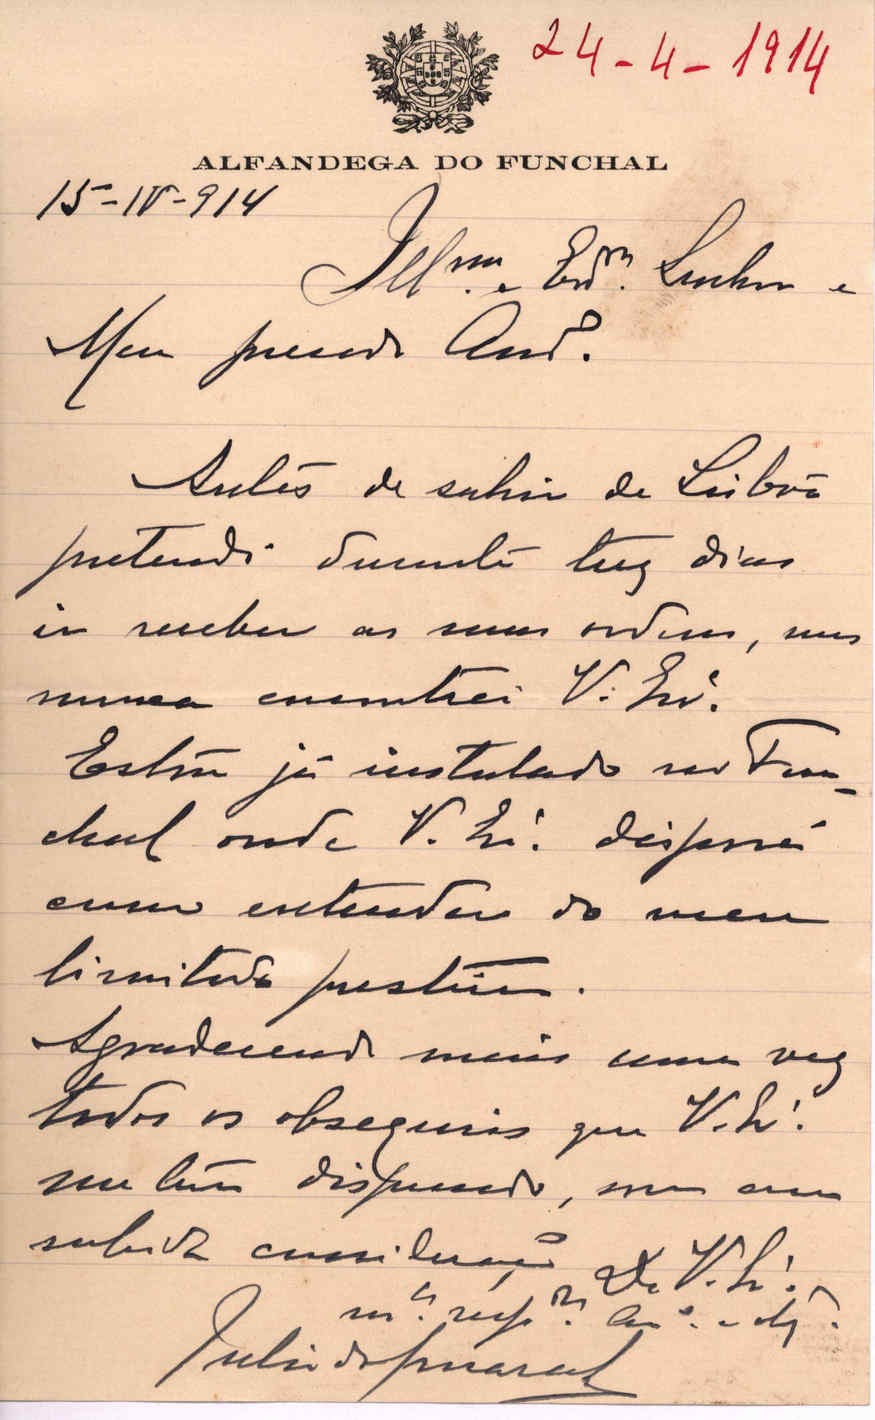 24-4-1914
ALFANDEGA DO FUNCHAL
15-IV-914
Illmo. e Exmo. Senhor e
Meu presado Amº.
Antes de sahir de Lisboa
pretendi durante trez dias
ir receber as suas ordens, mas
nunca encontrei V. Exª.
Estou já instalado no Fun-
chal onde V. Exª. disporá
como entender do meu
limitado prestimo.
Agradecendo mais uma vez
todos os obsequios que V. Exª.
me tem dispensado, sou com
subida consideração
De V. Exª.
mtº. respor. Amº. e obgº.
Julio do Amaral